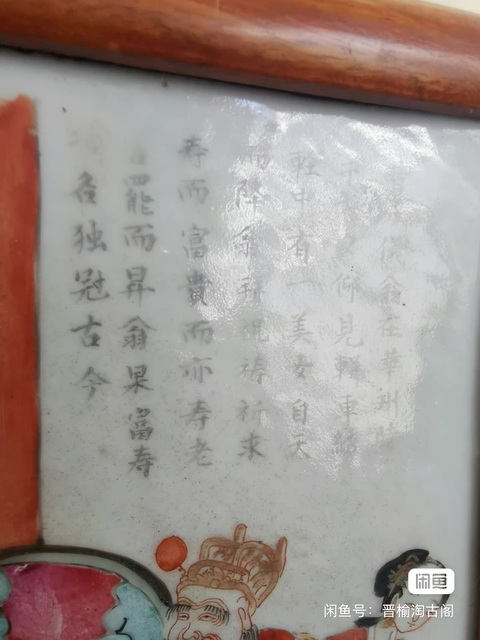 侯翁在華州
仰見輧車綉
中有一美女自天
降余拜祝祷祈求
寿而富貴而亦寿老
罷而昇翁果富寿
名独冠古今
闲鱼
闲鱼号：晋榆淘古阁